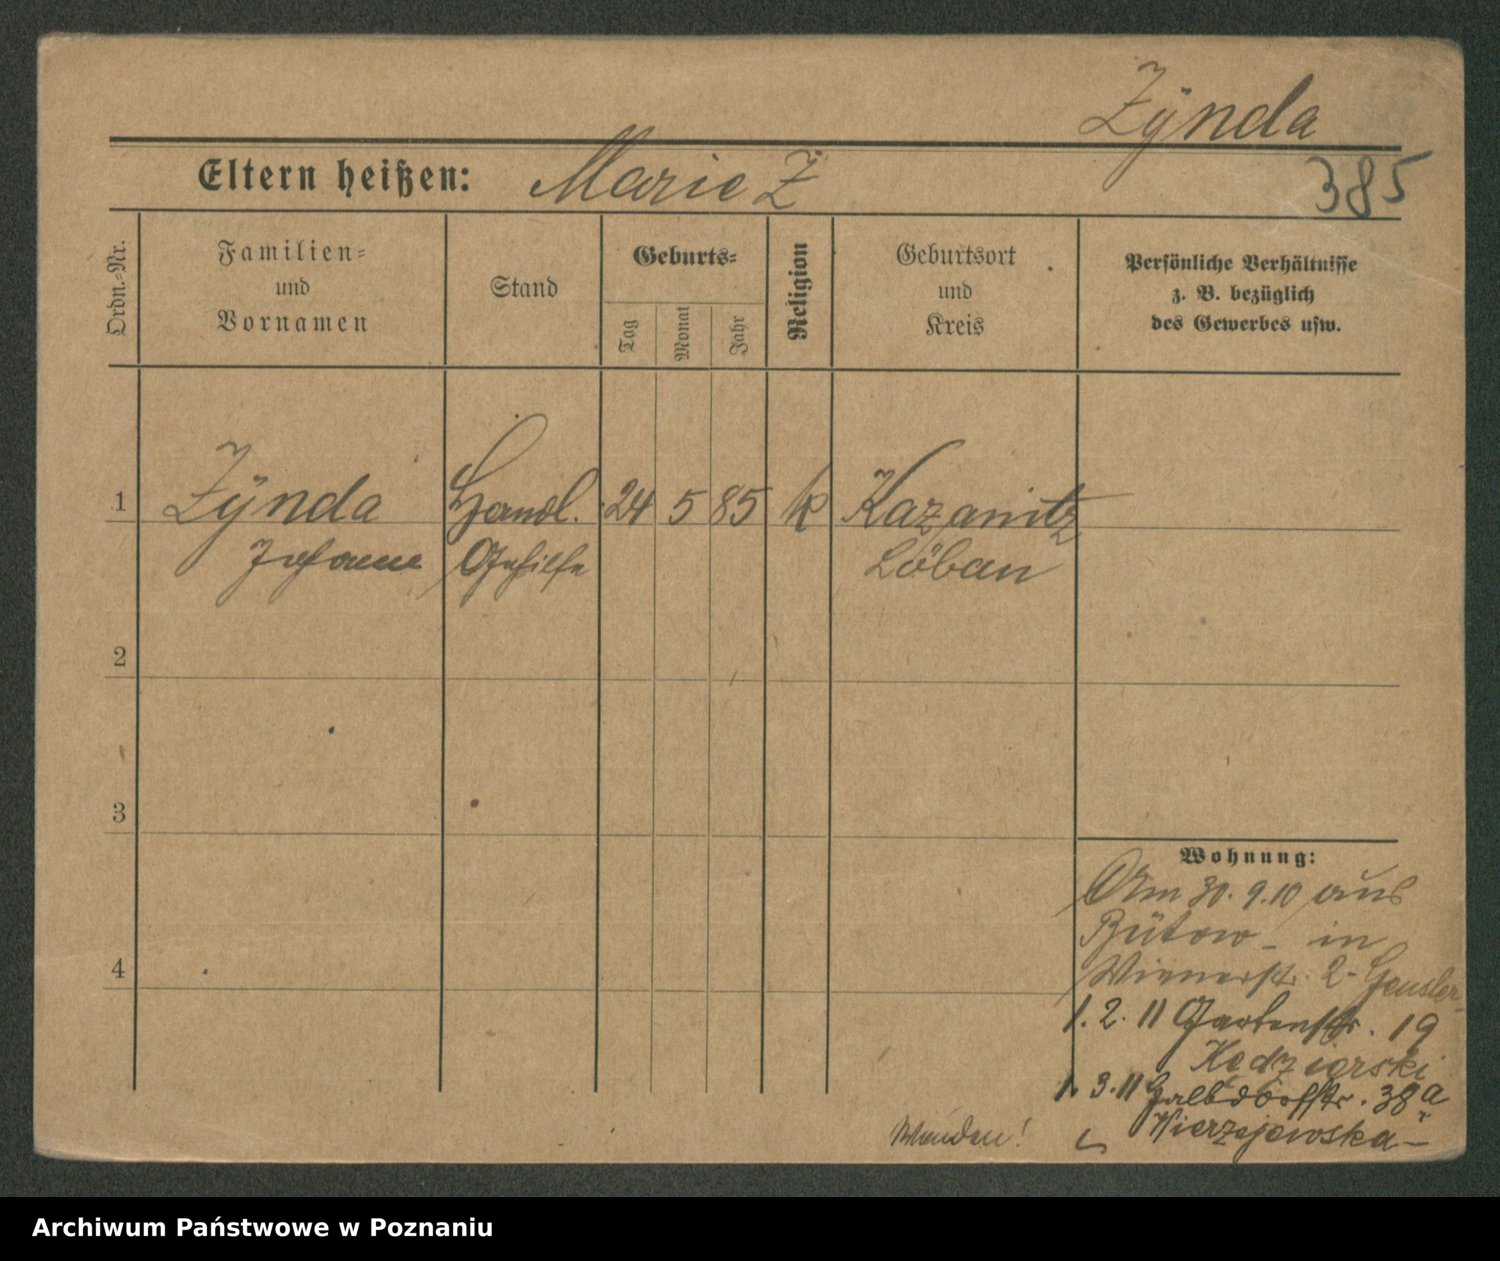 Zÿnda
Eltern heißen: Marie Z
385
Ordn.-Nr.
Familien-
und
Vornamen
Stand
Geburts-
Tag
Monat
Jahr
Religion
Geburtsort
und
Kreis
Persönliche Verhältnisse
z. B. bezüglich
des Gewerbes usw.
1 Zÿnda Handl. 24 5 85 k Kazanitz
Johann Gehilfe Löbau
2
3
4
Wohnung:
Am 30.9.10 aus
Bütow - in
Wienerstr. 2 - Gensler
1.2.11 Gartenstr. 19
Kedzierski
1.3.11 38a
Wierzejewska -
Wenden!
Archiwum Państwowe w Poznaniu